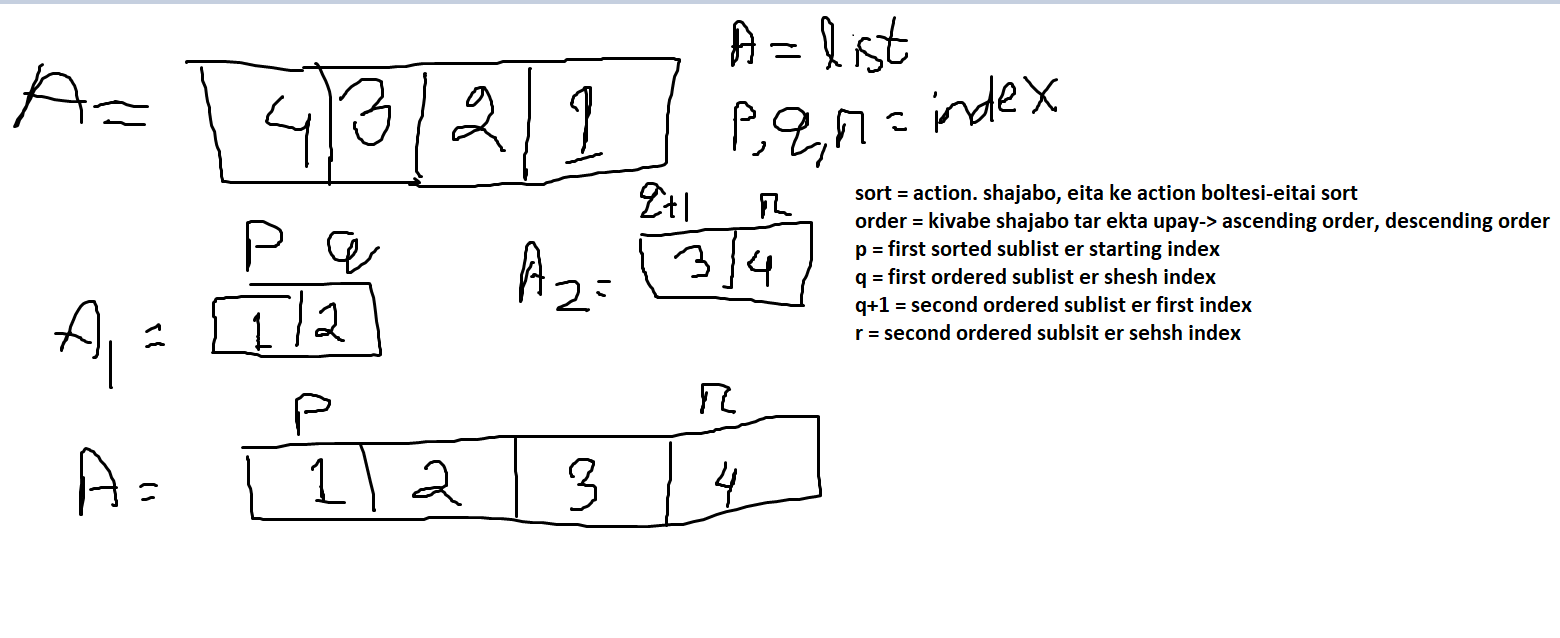 A = 4 3 2 1
A = list
P, q, r = index
sort = action. shajabo, eita ke action boltesi-eitai sort
order = kivabe shajabo tar ekta upay-> ascending order, descending order
p = first sorted sublist er starting index
q = first ordered sublist er shesh index
q+1 = second ordered sublist er first index
r = second ordered sublsit er sehsh index
P q
A1 = 1 2
q+1 r
A2 = 3 4
P r
A = 1 2 3 4